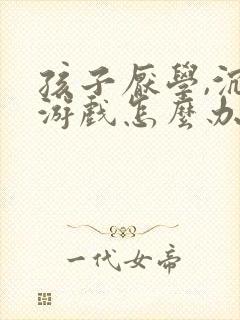 孩子厭學,沉
游戲怎麼办
一代女帝